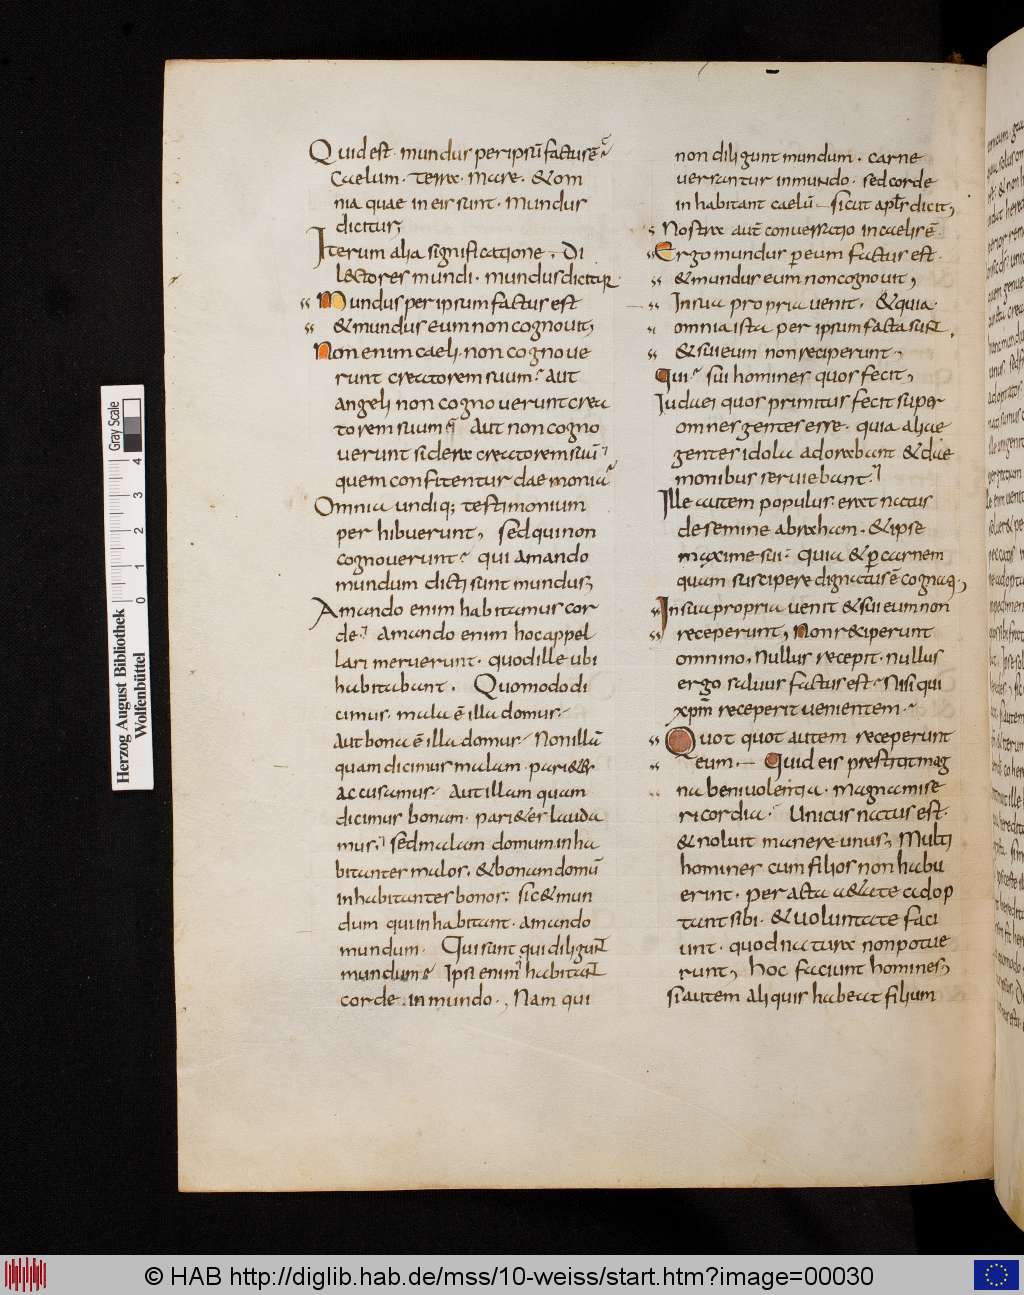 Quid est · mundus per ipsū factus ē
Caelum · Terra · Mare · & om
nia quae in eis sunt · Mundus
dicitur;
Iterum alia significatione · Di
lectores mundi · mundus dicitur
Mundus per ipsum factus est
& mundus eum non cognouit;
Non enim caeli · non cognoue
runt creatorem suum · Aut
angeli non cognouerunt crea
torem suum · Aut non cogno
uerunt sidera creatorem suū
quem confitentur daemonia
Omnia undiq; testimonium
per hibuerunt, sed qui non
cognouerunt · qui amando
mundum dicti sunt mundus;
Amando enim habitamus cor
de · Amando enim hoc appel
lari meruerunt · quod ille ubi
habitabant · Quomodo di
cimus · mala ē illa domus ·
Aut bona ē illa domus · Non illā
quam dicimus malam · pari&es
accusamus · Aut illam quam
dicimus bonam · pari&es lauda
mus, sed malam domum inha
bitantes malos, & bonam domū
inhabitantes bonos; sic & mun
dum qui inhabitant · amando
mundum · Qui sunt qui diligunt
mundum · Ipsi enim habitant
corde in mundo ·, Nam qui
non diligunt mundum · carne
uersantur in mundo · sed corde
in habitant caelū sicut aptls dicit,
Nostra aut conuersatio in caelis ē
Ergo mundus per eum factus est ·
& mundus eum non cognouit,
In sua propria uenit · & quia
omnia ista per ipsum facta sunt ,
& sui eum non receperunt,
Qui · sui homines quos fecit,
Iudaei quos primitus fecit super
omnes gentes esse · quia aliae
gentes idola adorabant & dae
monibus seruiebant ·
Ille autem populus erat natus
de semine abraham · & ipse
maxime sui · quia & per carnem
quam suscipere dignatus ē cognaq;,
In sua propria uenit & sui eum non
receperunt, Non r&iperunt
omnino, Nullus recepit · nullus
ergo saluus factus est · Nisi qui
xpm receperit uenientem ·
Quot quot autem receperunt
eum · — Quid eis prestitit mag
na beniuolentia · magna mise
ricordia · Unicus natus est ·
& noluit manere unus, Multi
homines cum filios non habu
erint · per acta a&ate adop
tant sibi · & uoluntate faci
unt · quod natura non potue
runt, hoc faciunt homines,
si autem aliquis habeat filium
Gray Scale
0 1 2 3 4
Herzog August Bibliothek
Wolfenbüttel
© HAB http://diglib.hab.de/mss/10-weiss/start.htm?image=00030